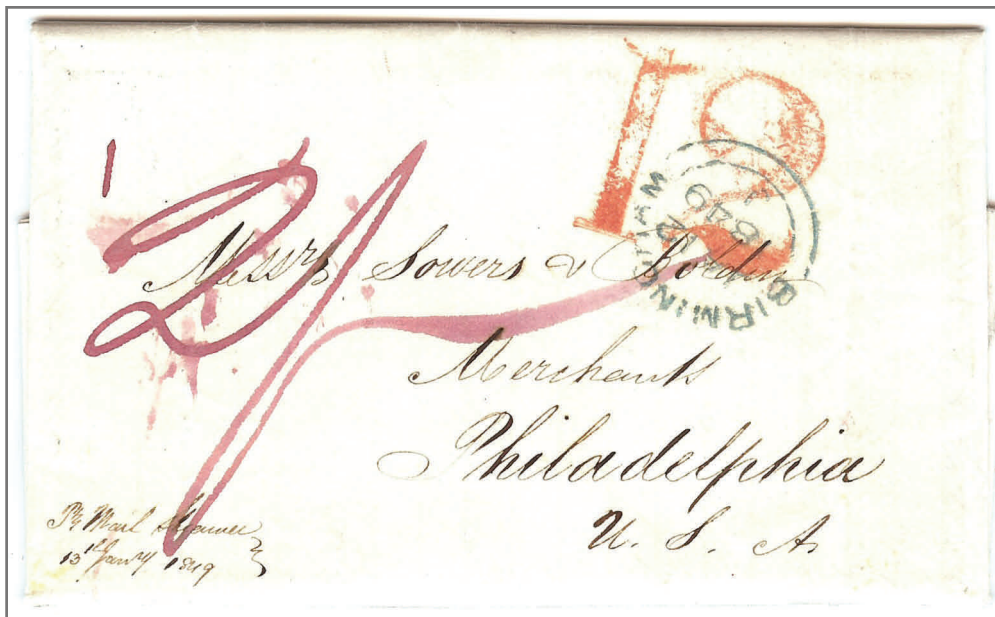 12
BIRMINGHAM
1849
2/
Messrs Sowers &
Merchants
Philadelphia
U. S. A.
Pr Mail Steamer
13th Jany 1849